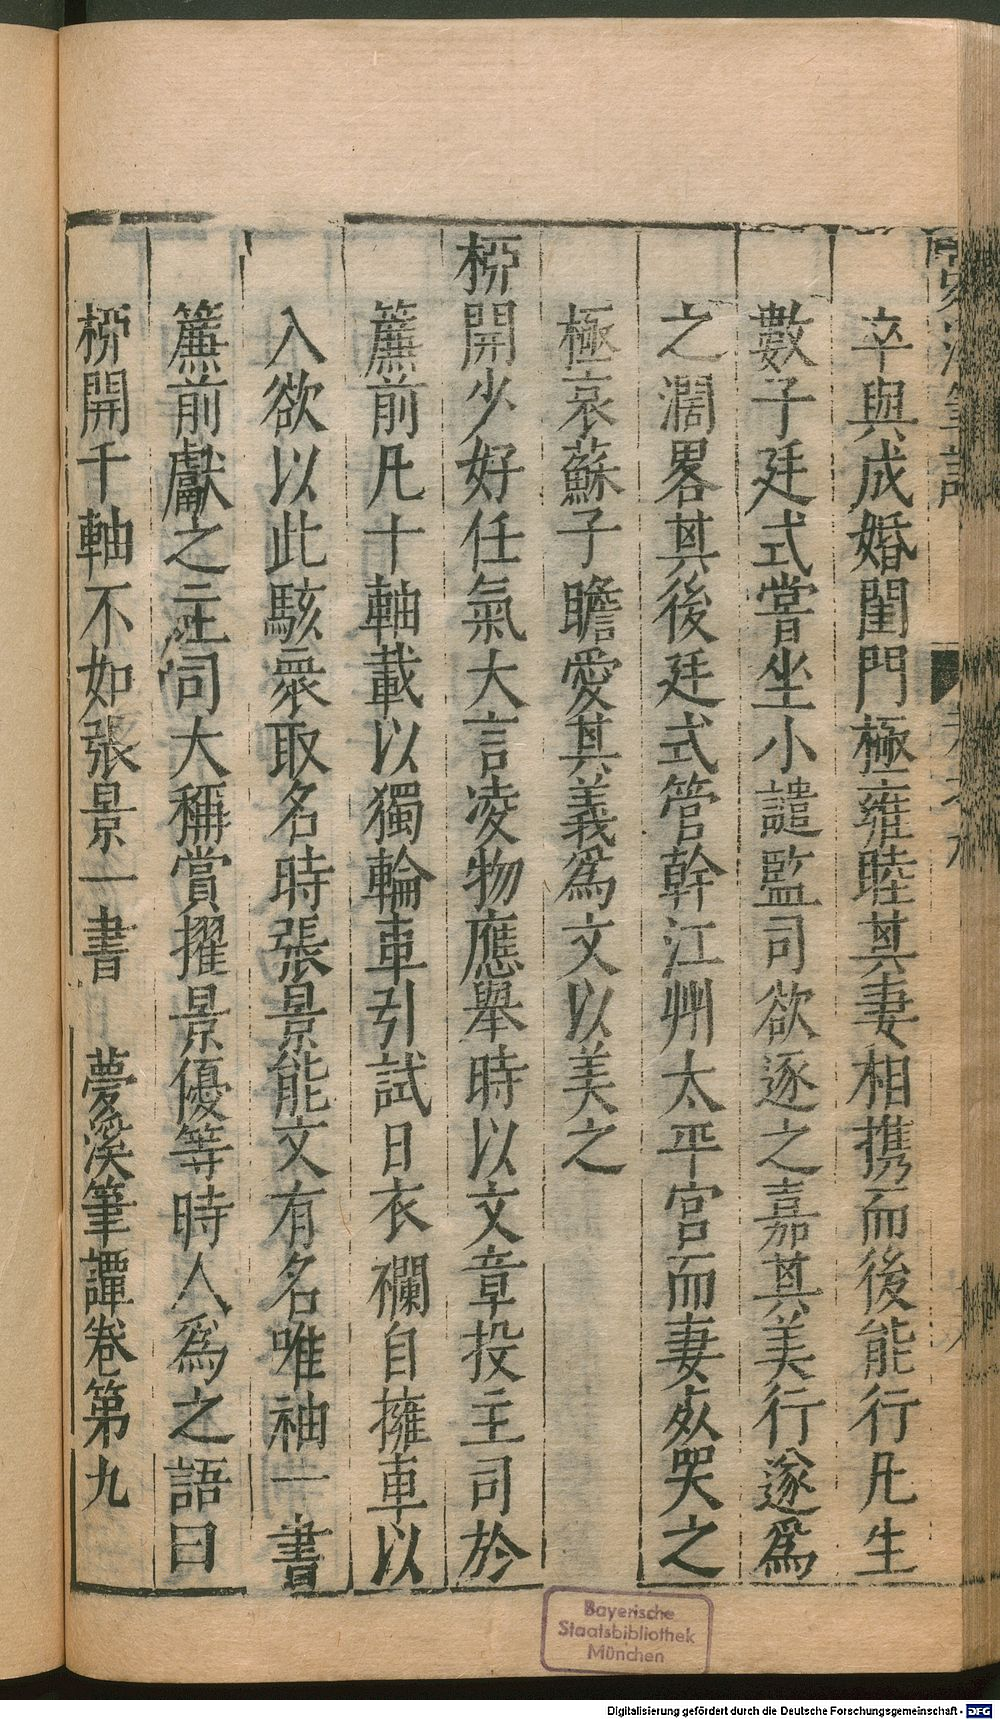 卒與成婚閨門極雍睦其妻相携而後能行凡生
數子廷式嘗坐小譴監司欲逐之嘉其美行遂爲
之濶畧其後廷式管幹江州太平宮而妻死哭之
極哀蘇子瞻愛其義爲文以美之
栁開少好任氣大言凌物應舉時以文章投主司於
簾前凡十軸載以獨輪車引試日衣襴自擁車以
入欲以此駭衆取名時張景能文有名唯袖一書
簾前獻之主司大稱賞擢景優等時人爲之語曰
栁開千軸不如張景一書　夢溪筆譚卷第九
Bayerische
Staatsbibliothek
München
Digitalisierung gefördert durch die Deutsche Forschungsgemeinschaft - DFG